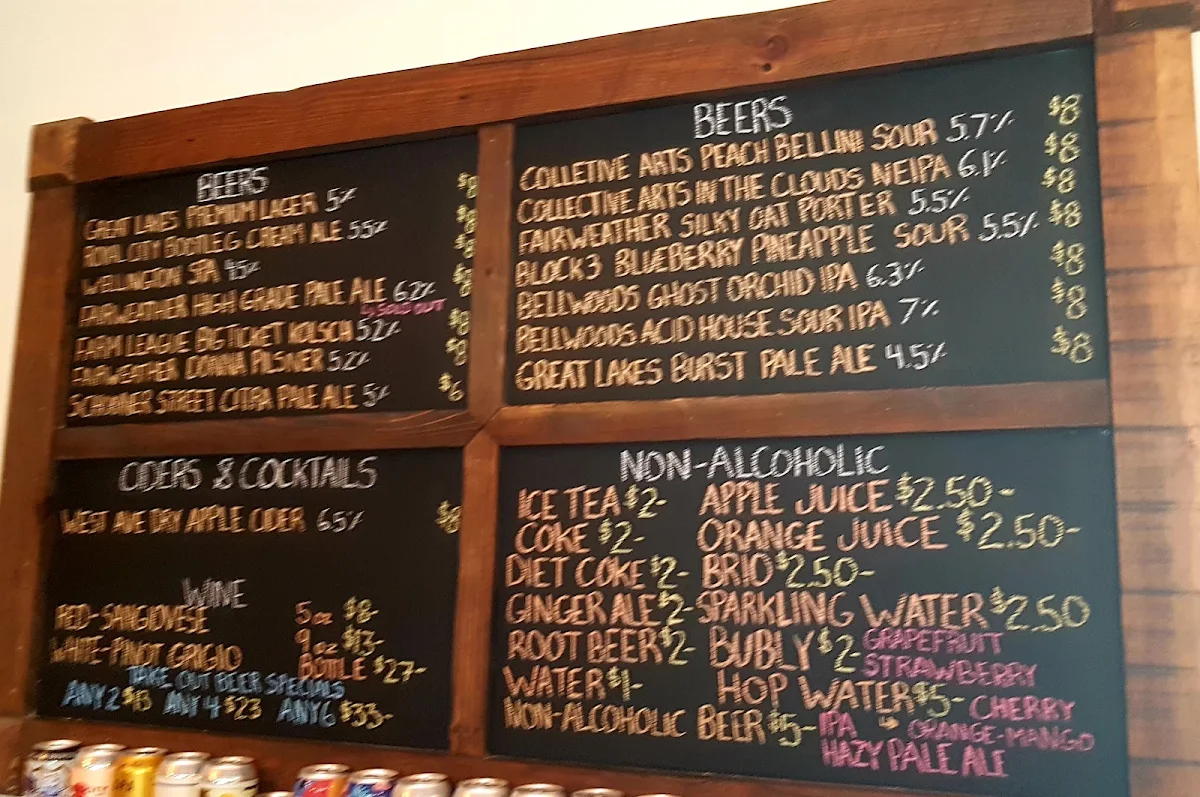 BEERS
GREAT LAKES PREMIUM LAGER 5% $8
ROYAL CITY BOOTLEG CREAM ALE 5.5% $8
WELLINGTON SPA 4.5% $8
FAIRWEATHER HIGH GRADE PALE ALE 6.2% $8
↳ SOLD OUT
FARM LEAGUE BIG TICKET KOLSCH 5.2% $8
FAIRWEATHER DONNA PILSNER 5.2% $8
SCHANNER STREET CITRA PALE ALE 5% $6
BEERS
COLLETIVE ARTS PEACH BELLINI SOUR 5.7% $8
COLLECTIVE ARTS IN THE CLOUDS NEIPA 6.1% $8
FAIRWEATHER SILKY OAT PORTER 5.5% $8
BLOCK 3 BLUEBERRY PINEAPPLE SOUR 5.5% $8
BELLWOODS GHOST ORCHID IPA 6.3% $8
BELLWOODS ACID HOUSE SOUR IPA 7% $8
GREAT LAKES BURST PALE ALE 4.5% $8
CIDERS & COCKTAILS
WEST AVE DRY APPLE CIDER 6.5% $8
WINE
RED-SANGIOVESE 5oz $8-
9oz $13-
WHITE-PINOT GRIGIO BOTTLE $27-
TAKE OUT BEER SPECIALS
ANY 2 $13 ANY 4 $23 ANY 6 $33-
NON-ALCOHOLIC
ICE TEA $2- APPLE JUICE $2.50-
COKE $2- ORANGE JUICE $2.50-
DIET COKE $2- BRIO $2.50-
GINGER ALE $2- SPARKLING WATER $2.50
ROOT BEER $2- BUBLY $2- GRAPEFRUIT
STRAWBERRY
WATER $1- HOP WATER $5- CHERRY
↳ ORANGE-MANGO
NON-ALCOHOLIC BEER $5- IPA
HAZY PALE ALE